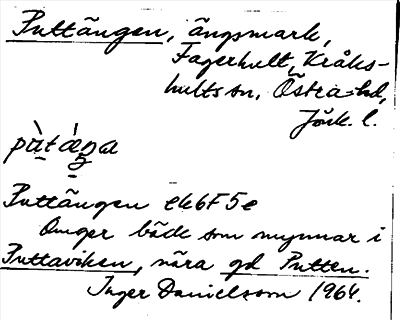 Puttängen, ängsmark,
Fagerhult, Kråks-
hults sn. Östra hd,
Jönk. l.
Puttängen ek 6F5e
Omger bäck som mynnar i
Puttaviken, nära gd Putten.
Inger Danielsson 1964.